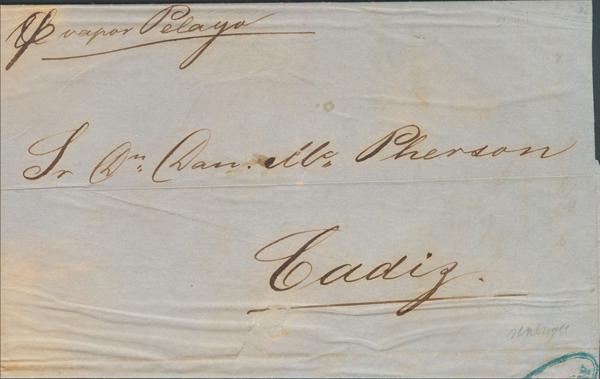 vapor Pelayo
Sr Dn. Dan. Mc. Pherson
Cadiz.